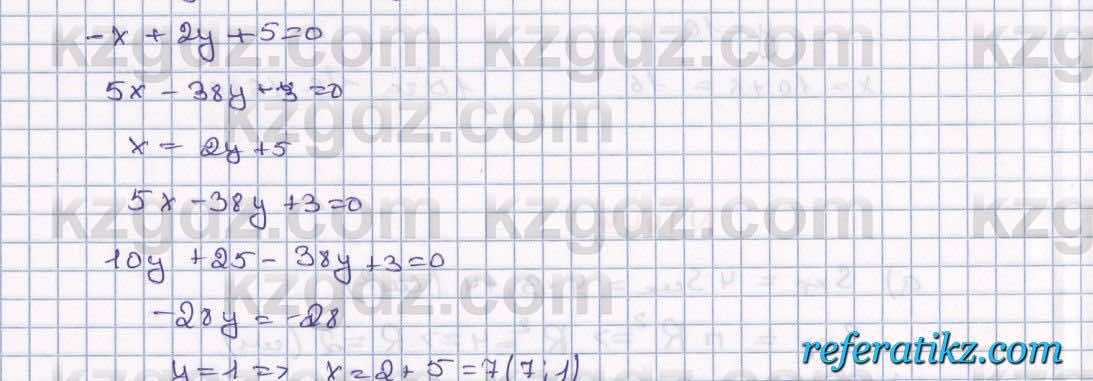 -x + 2y + 5 = 0
5x - 38y + 3 = 0
x = 2y + 5
5x - 38y + 3 = 0
10y + 25 - 38y + 3 = 0
-28y = -28
y = 1 => x = 2 + 5 = 7 (7; 1)
kzgdz.com kzgdz.com kzg
kzgdz.com kzgdz.com
kzgdz.com kzgdz.com kzg
kzgdz.com kzgdz.com
kzgdz.com kzgdz.com
referatikz.com